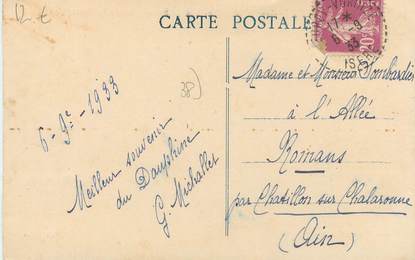 12 €
CARTE POSTALE
17 *
6 - 9
33
ISÈRE
20
38)
6 - 9e - 1933
Meilleur souvenir
du Dauphiné
G. Michallet
Madame et Monsieur Pombardier
à l'Allée
Romans
par Chatillon sur Chalaronne
(Ain)